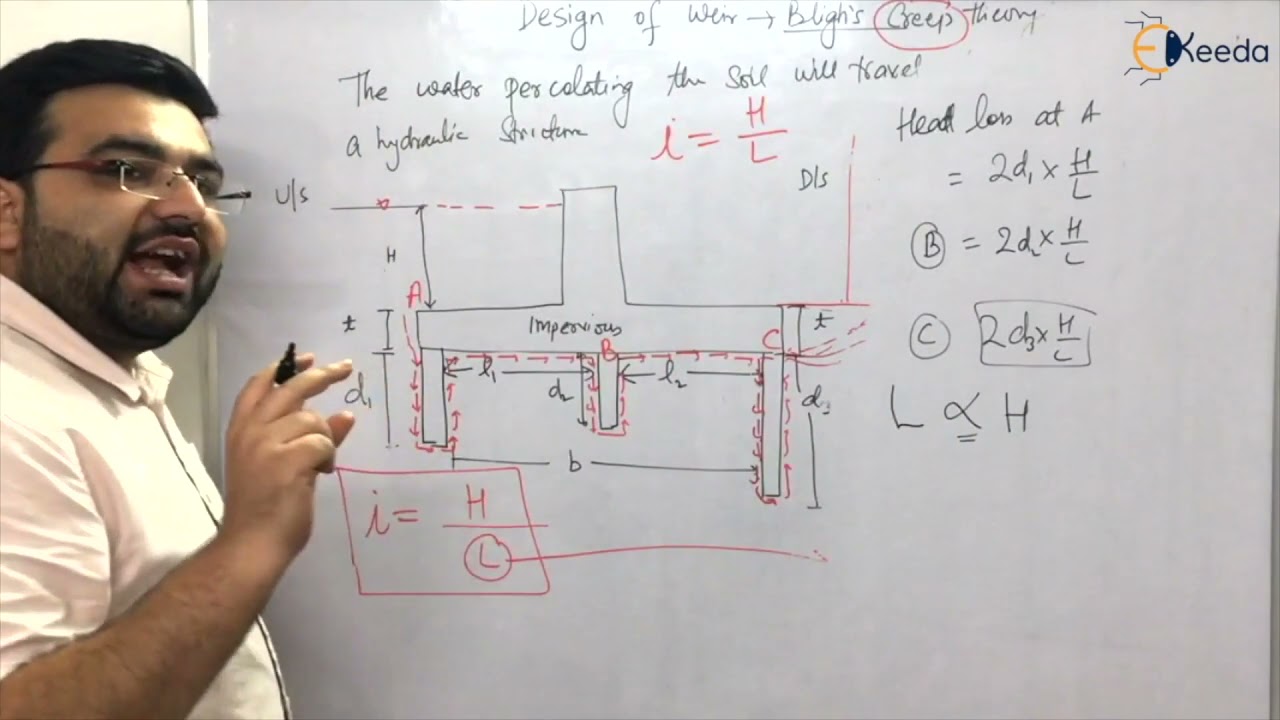 Design of Weir → Bligh's Creep theory
Keeda
The water percolating the soil will travel
a hydraulic Structure
i = H/L
Head loss at A
= 2d₁ × H/L
U/s
D/s
(B) = 2d₂ × H/L
H
A
t
Impervious
t
B
C
(C) 2d₃ × H/L
l₁
d₂
l₂
d₁
d₃
L ∝ H
b
i = H/L